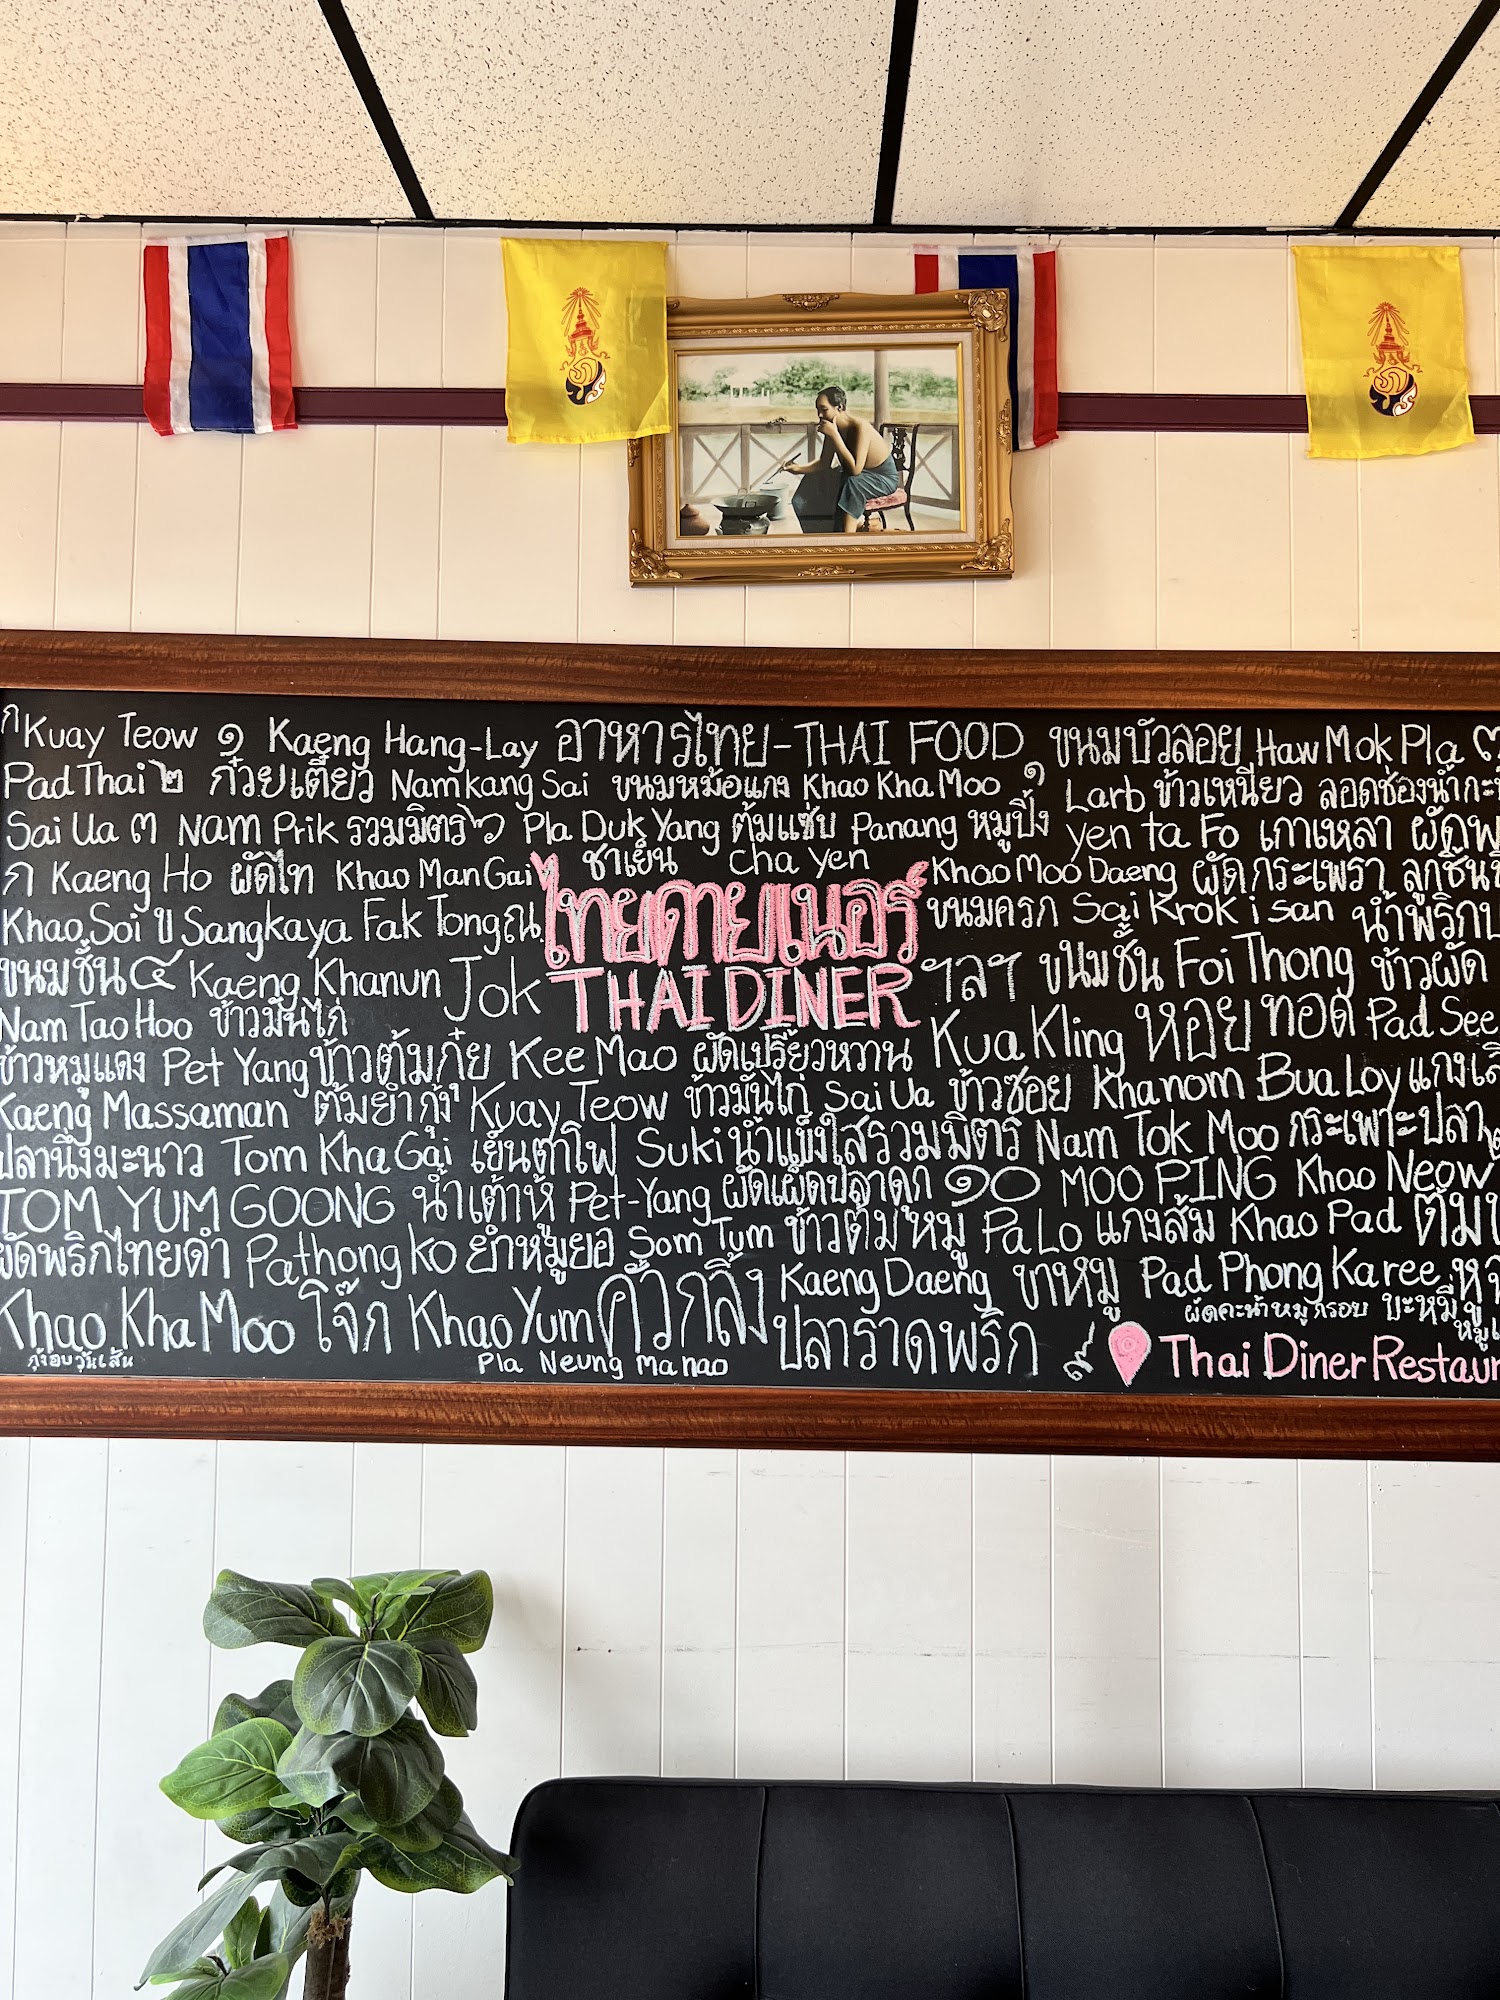 ก Kuay Teow ๑ Kaeng Hang-Lay อาหารไทย-THAI FOOD ขนมบัวลอย Haw Mok Pla ๓
Pad Thai ๒ ก๋วยเตี๋ยว Namkang Sai ขนมหม้อแกง Khao Kha Moo ๑ Larb ข้าวเหนียว ลอดช่องน้ำกะทิ
Sai Ua ๓ Nam Prik รวมมิตร ๖ Pla Duk Yang ต้มแซ่บ Panang หมูปิ้ง Yen ta Fo เกาเหลา
ก Kaeng Ho ผัดไท Khao Man Gai ชาเย็น Cha Yen Khao Moo Daeng ผัดกระเพรา ลูกชิ้น
Khao Soi ข Sangkaya Fak Tong ณ ไทยดายเนอร์ ขนมครก Sai Krok isan น้ำพริก
ขนมชั้น ๔ Kaeng Khanun Jok THAI DINER ฯลฯ ขนมชั้น Foi Thong ข้าวผัด
Nam Tao Hoo ข้าวมันไก่ Kua Kling หอยทอด Pad See
ข้าวหมูแดง Pet Yang ข้าวต้มกุ๊ย Kee Mao ผัดเปรี้ยวหวาน Khanom Bua Loy
Kaeng Massaman ต้มยำกุ้ง Kuay Teow ข้าวมันไก่ Sai Ua ข้าวซอย
ปลานึ่งมะนาว Tom Kha Gai เย็นตาโฟ Suki น้ำแข็งใสรวมมิตร Nam Tok Moo กระเพาะปลา
TOM YUM GOONG น้ำเต้าหู้ Pet-Yang ผัดเผ็ดปลาดุก ๑๐ MOO PING Khao Neow
ผัดพริกไทยดำ Pathongko ยำหมูยอ Som Tum ข้าวต้มหมู Pa Lo แกงส้ม Khao Pad
Khao Kha Moo โจ๊ก Khao Yum คั่วกลิ้ง Kaeng Daeng ขาหมู Pad Phong Karee
กุ้งอบวุ้นเส้น Pla Neung Manao ปลาราดพริก ผัดคะน้าหมูกรอบ บะหมี่หมู
Thai Diner Restaur